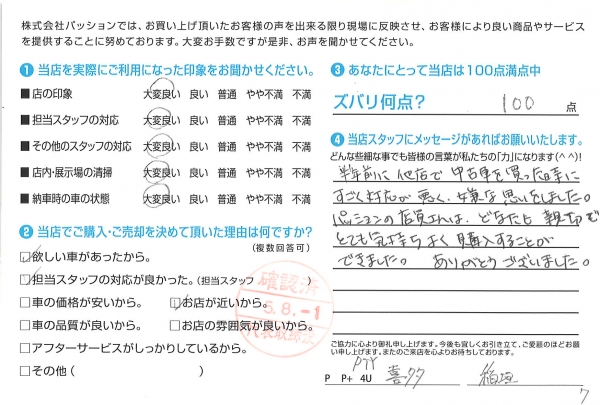 株式会社パッションでは、お買い上げ頂いたお客様の声を出来る限り現場に反映させ、お客様により良い商品やサービス
を提供することに努めております。大変お手数ですが是非、お声を聞かせてください。
❶ 当店を実際にご利用になった印象をお聞かせください。
■店の印象 大変良い 良い 普通 やや不満 不満
■担当スタッフの対応 大変良い 良い 普通 やや不満 不満
■その他のスタッフの対応 大変良い 良い 普通 やや不満 不満
■店内・展示場の清掃 大変良い 良い 普通 やや不満 不満
■納車時の車の状態 大変良い 良い 普通 やや不満 不満
❷ 当店でご購入・ご売却を決めて頂いた理由は何ですか?
(複数回答可)
□欲しい車があったから。
□担当スタッフの対応が良かった。(担当スタッフ )
□車の価格が安いから。 □お店が近いから。
□車の品質が良いから。 □お店の雰囲気が良いから。
□アフターサービスがしっかりしているから。
□その他( )
確認済
5.8.-1
代表取締役
❸ あなたにとって当店は100点満点中
ズバリ何点? 100 点
❹ 当店スタッフにメッセージがあればお願いいたします。
どんな些細な事でも皆様の言葉が私たちの「力」になります(^^)!
半年前に他店で中古車を買った時に
すごく対応が悪く、嫌な思いをしました。
パッションの店員さんは、どなたも親切で
とても気持ちよく購入することが
できました。 ありがとうございました。
ご協力に心より御礼申し上げます。今後も宜しくお引き立て、ご愛顧のほどお願
い申し上げます。またのご来店を心よりお待ちしております。
P P+ 4U 喜多 稲垣
7